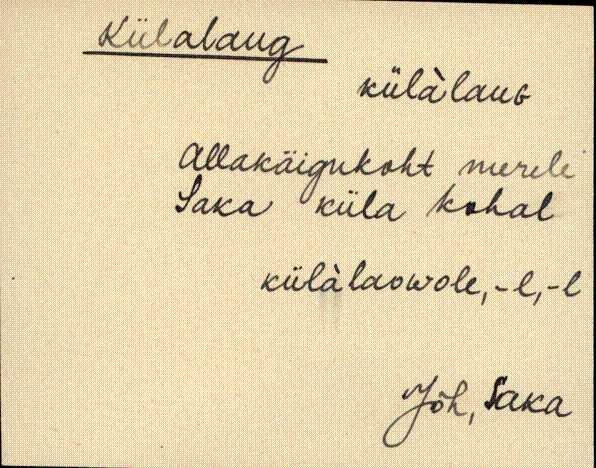 Külalaug
külàlauɢ
Allakäigukoht merele
Saka küla kohal
külàlaowole, -l, -l
Jõh, Saka